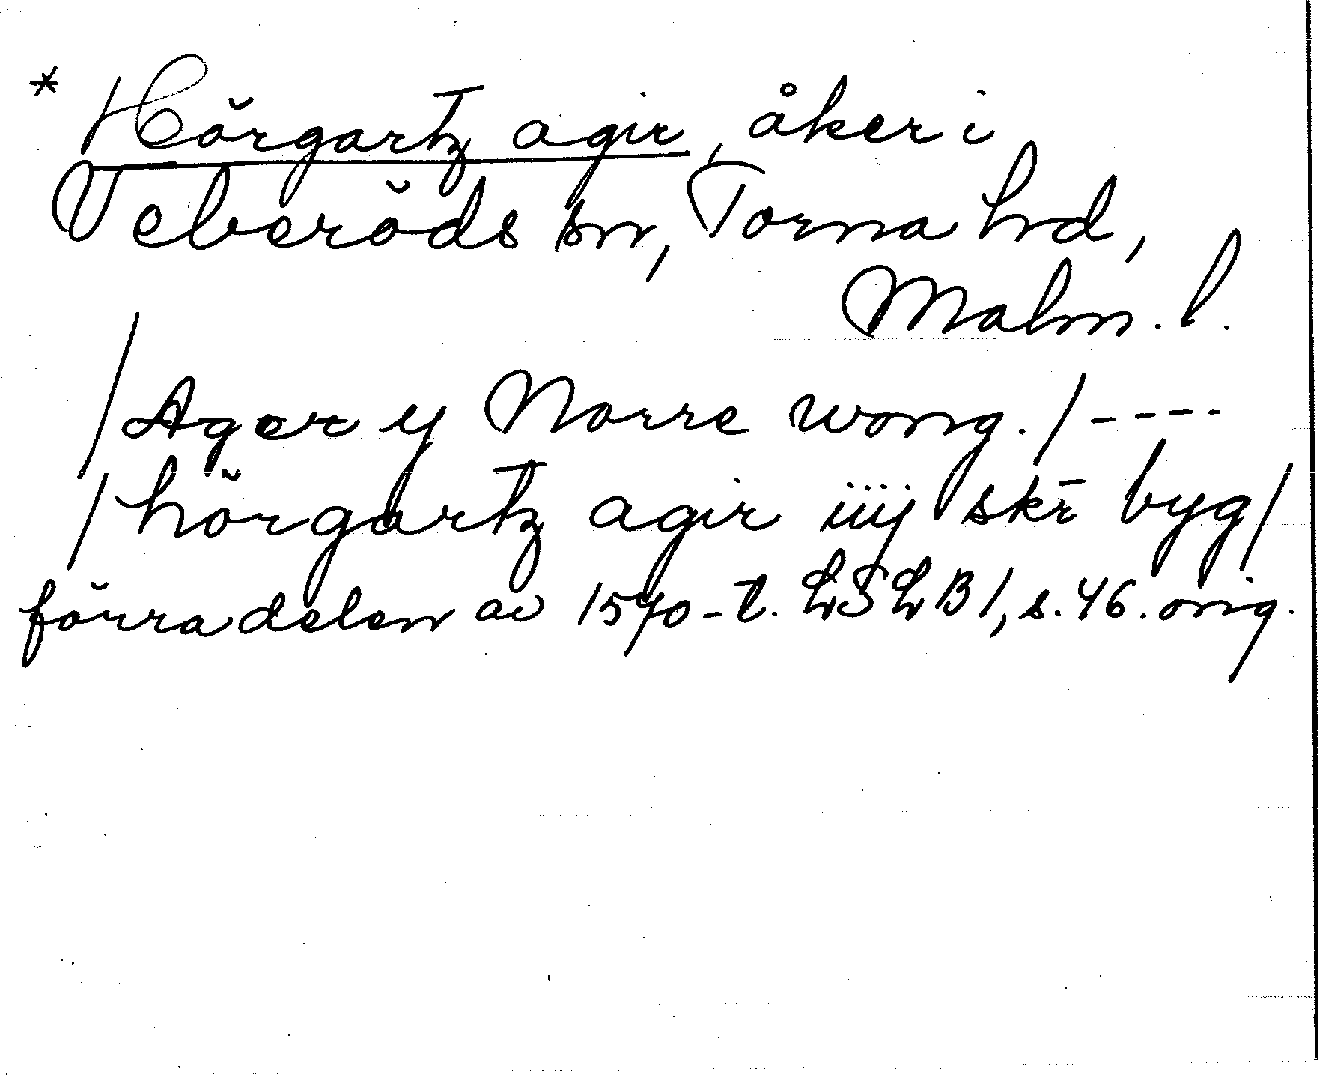 * Hörgartz agir, åker i
Veberöds sn, Torna hd,
Malm. l.
/Ager y Norre wong./----
/hörgartz agir iiij skr̄ byg/
förra delen av 1540-t. LSLB1, s. 46. orig.